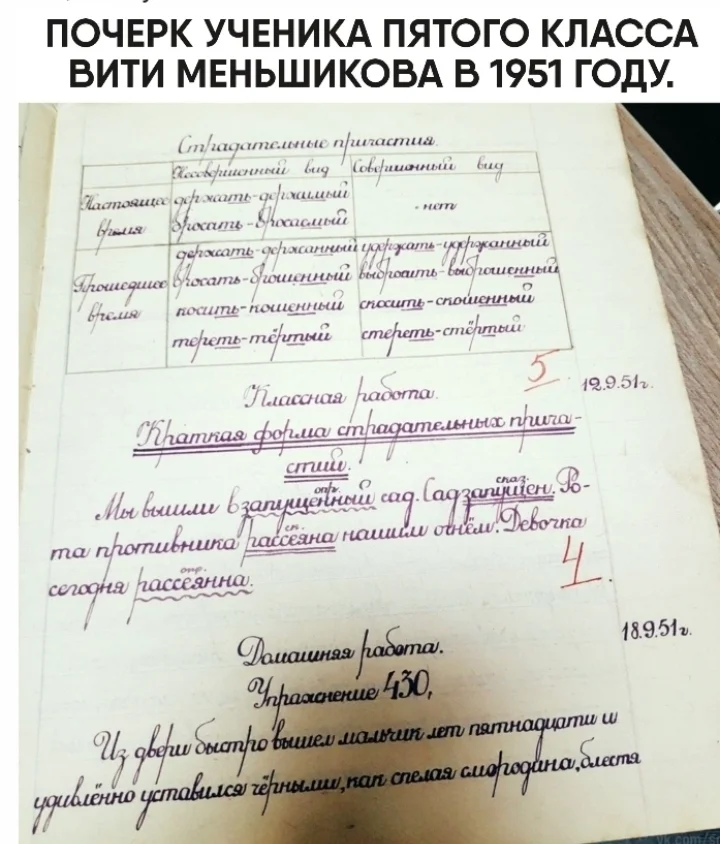 ПОЧЕРК УЧЕНИКА ПЯТОГО КЛАССА
ВИТИ МЕНЬШИКОВА В 1951 ГОДУ.
Страдательные причастия.
Несовершенный вид Совершенный вид
Настоящее время
держать-держимый
бросать-бросаемый
- нет
Прошедшее время
держать-держанный удержать-удержанный
бросать-брошенный выбросить-выброшенный
косить-кошенный скосить-скошенный
тереть-тёртый стереть-стёртый
5
12.9.51г.
Классная работа.
Краткая форма страдательных прича-
стий.
опр. сказ.
Мы вышли в запущенный сад. Сад запущен. Ро-
та противника рассеяна нашим огнём. Девочка
опр.
сегодня рассеянна.
4
18.9.51г.
Домашняя работа.
Упражнение 430,
Из двери быстро вышел мальчик лет пятнадцати и
удивлённо уставился чёрными, как спелая смородина, блестя
vk.com